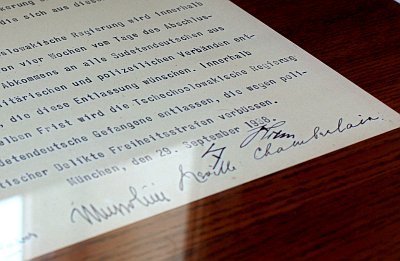 die sich aus diesem
oslowakische Regierung wird innerhalb
en vier Wochen vom Tage des Abschlus-
Abkommens an alle Sudetendeutschen aus
itärischen und polizeilichen Verbänden ent-
, die diese Entlassung wünschen. Innerhalb
elben Frist wird die Tschechoslowakische Regierung
detendeutsche Gefangene entlassen, die wegen poli-
tischer Delikte Freiheitsstrafen verbüssen.
München, den 29. September 1938.
Mussolini Neville Chamberlain